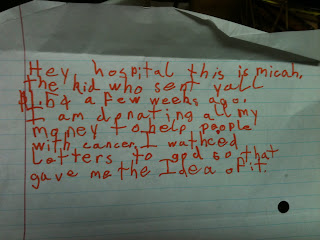 Hey hospital this is micah.
The kid who sent yall
$1.64 a few weeks ago.
I am donating all my
money to help people
with cancer. I wathced
Letters to god so that
gave me the Idea of it.